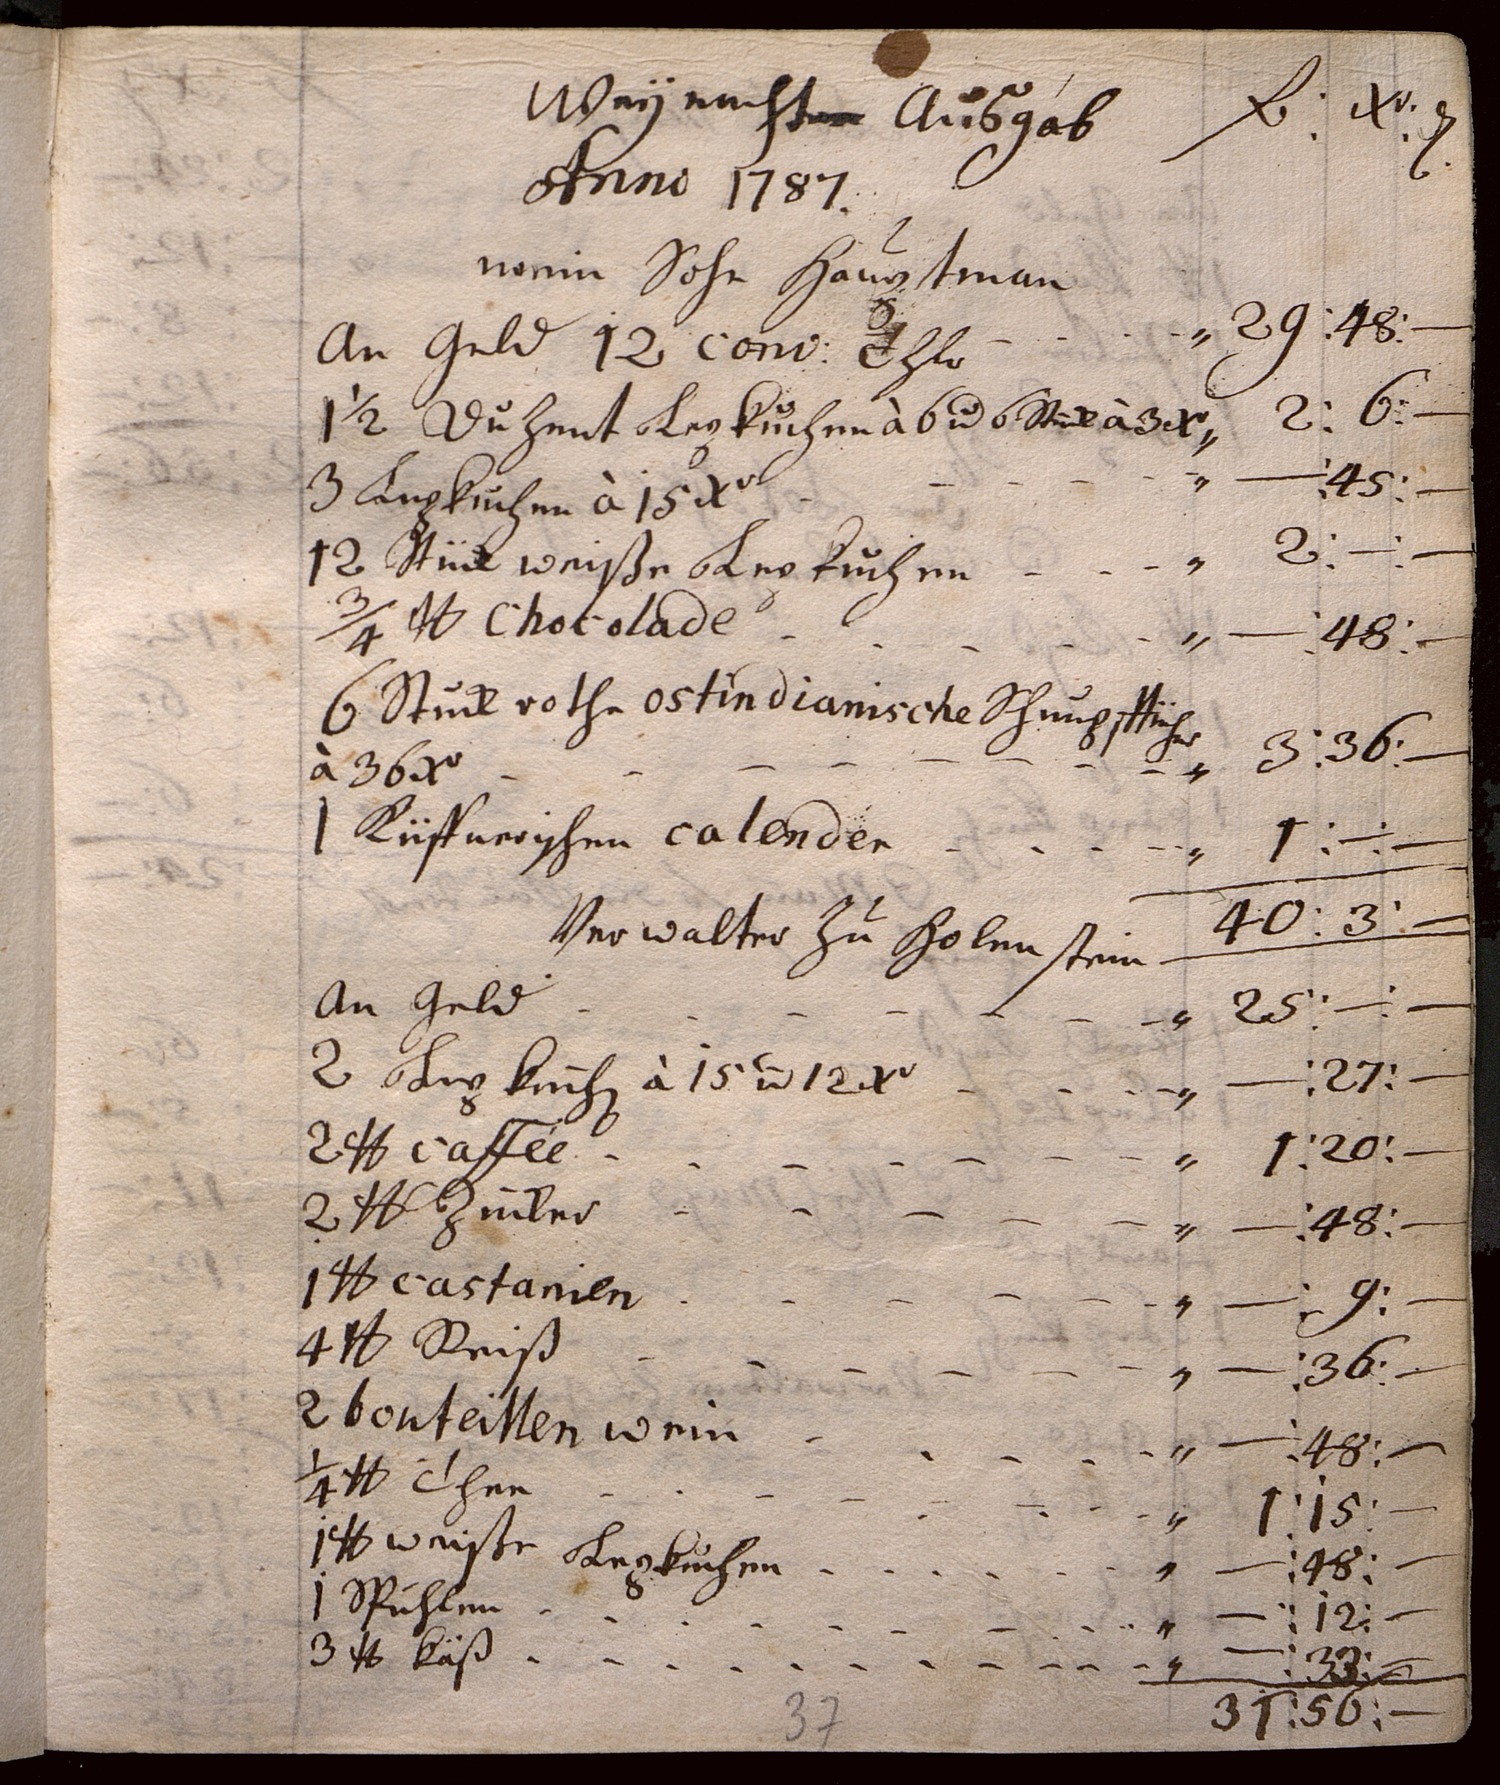 Weÿnacht Ausgab f: xr: ₰.
Anno 1787.
mein Sohn Hauptman
An Geld 12 conv: Thlr - - - " 29:48:—
1½ Duzent Lezkuchen à 6 u 6 Stuck à 3xr " 2: 6:—
3 Lezkuchen à 15xr - - - - - " —:45:—
12 Stück weiße Lezkuchen - - - " 2:—:—
¾ ℔ Chocolade - - - - - - " —:48:—
6 Stück rothe ostindianische Schnupfttücher
à 36xr - - - - - - - - - " 3:36:—
1 Küffnerischen calender - - - - " 1:—:—
40: 3:—
Verwalter zu Holenstein
An Geld - - - - - - - " 25:—:—
2 Lezkuchen à 15 u 12xr - - - - " —:27:—
2 ℔ caffée - - - - - - - " 1:20:—
2 ℔ Zucker - - - - - - " —:48:—
1 ℔ castanien - - - - - - " —: 9:—
4 ℔ Reiß - - - - - - - " —:36:—
2 bouteillen wein - - - - - " —:48:—
¼ ℔ Thee - - - - - - - - " 1:15:—
1 ℔ weiße Lezkuchen - - - - - - " —:48:—
1 - - - - - - - - - - " —:12:—
3 ℔ käß - - - - - - - - - - - " —:33:—
31:56:—
37